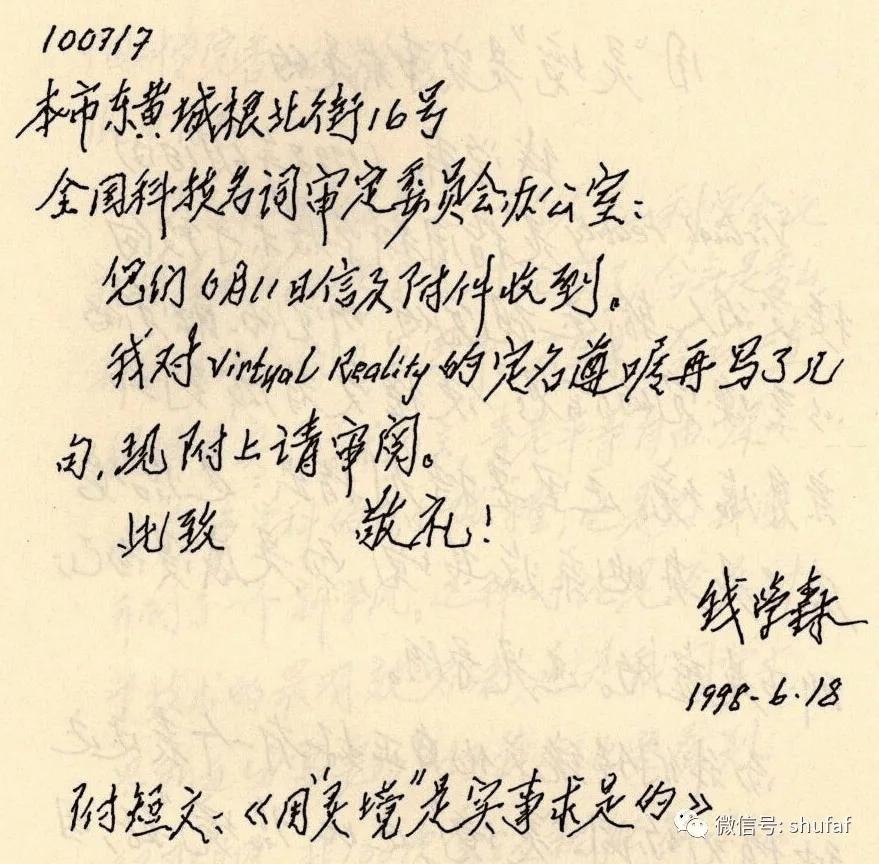 100717
本市东黄城根北街16号
全国科技名词审定委员会办公室：
您们6月11日信及附件收到。
我对Virtual Reality的定名遵嘱再写了几
句，现附上请审阅。
此致 敬礼！
钱学森
1998-6.18
附短文：《用"灵境"是实事求是的》
微信号: shufaf